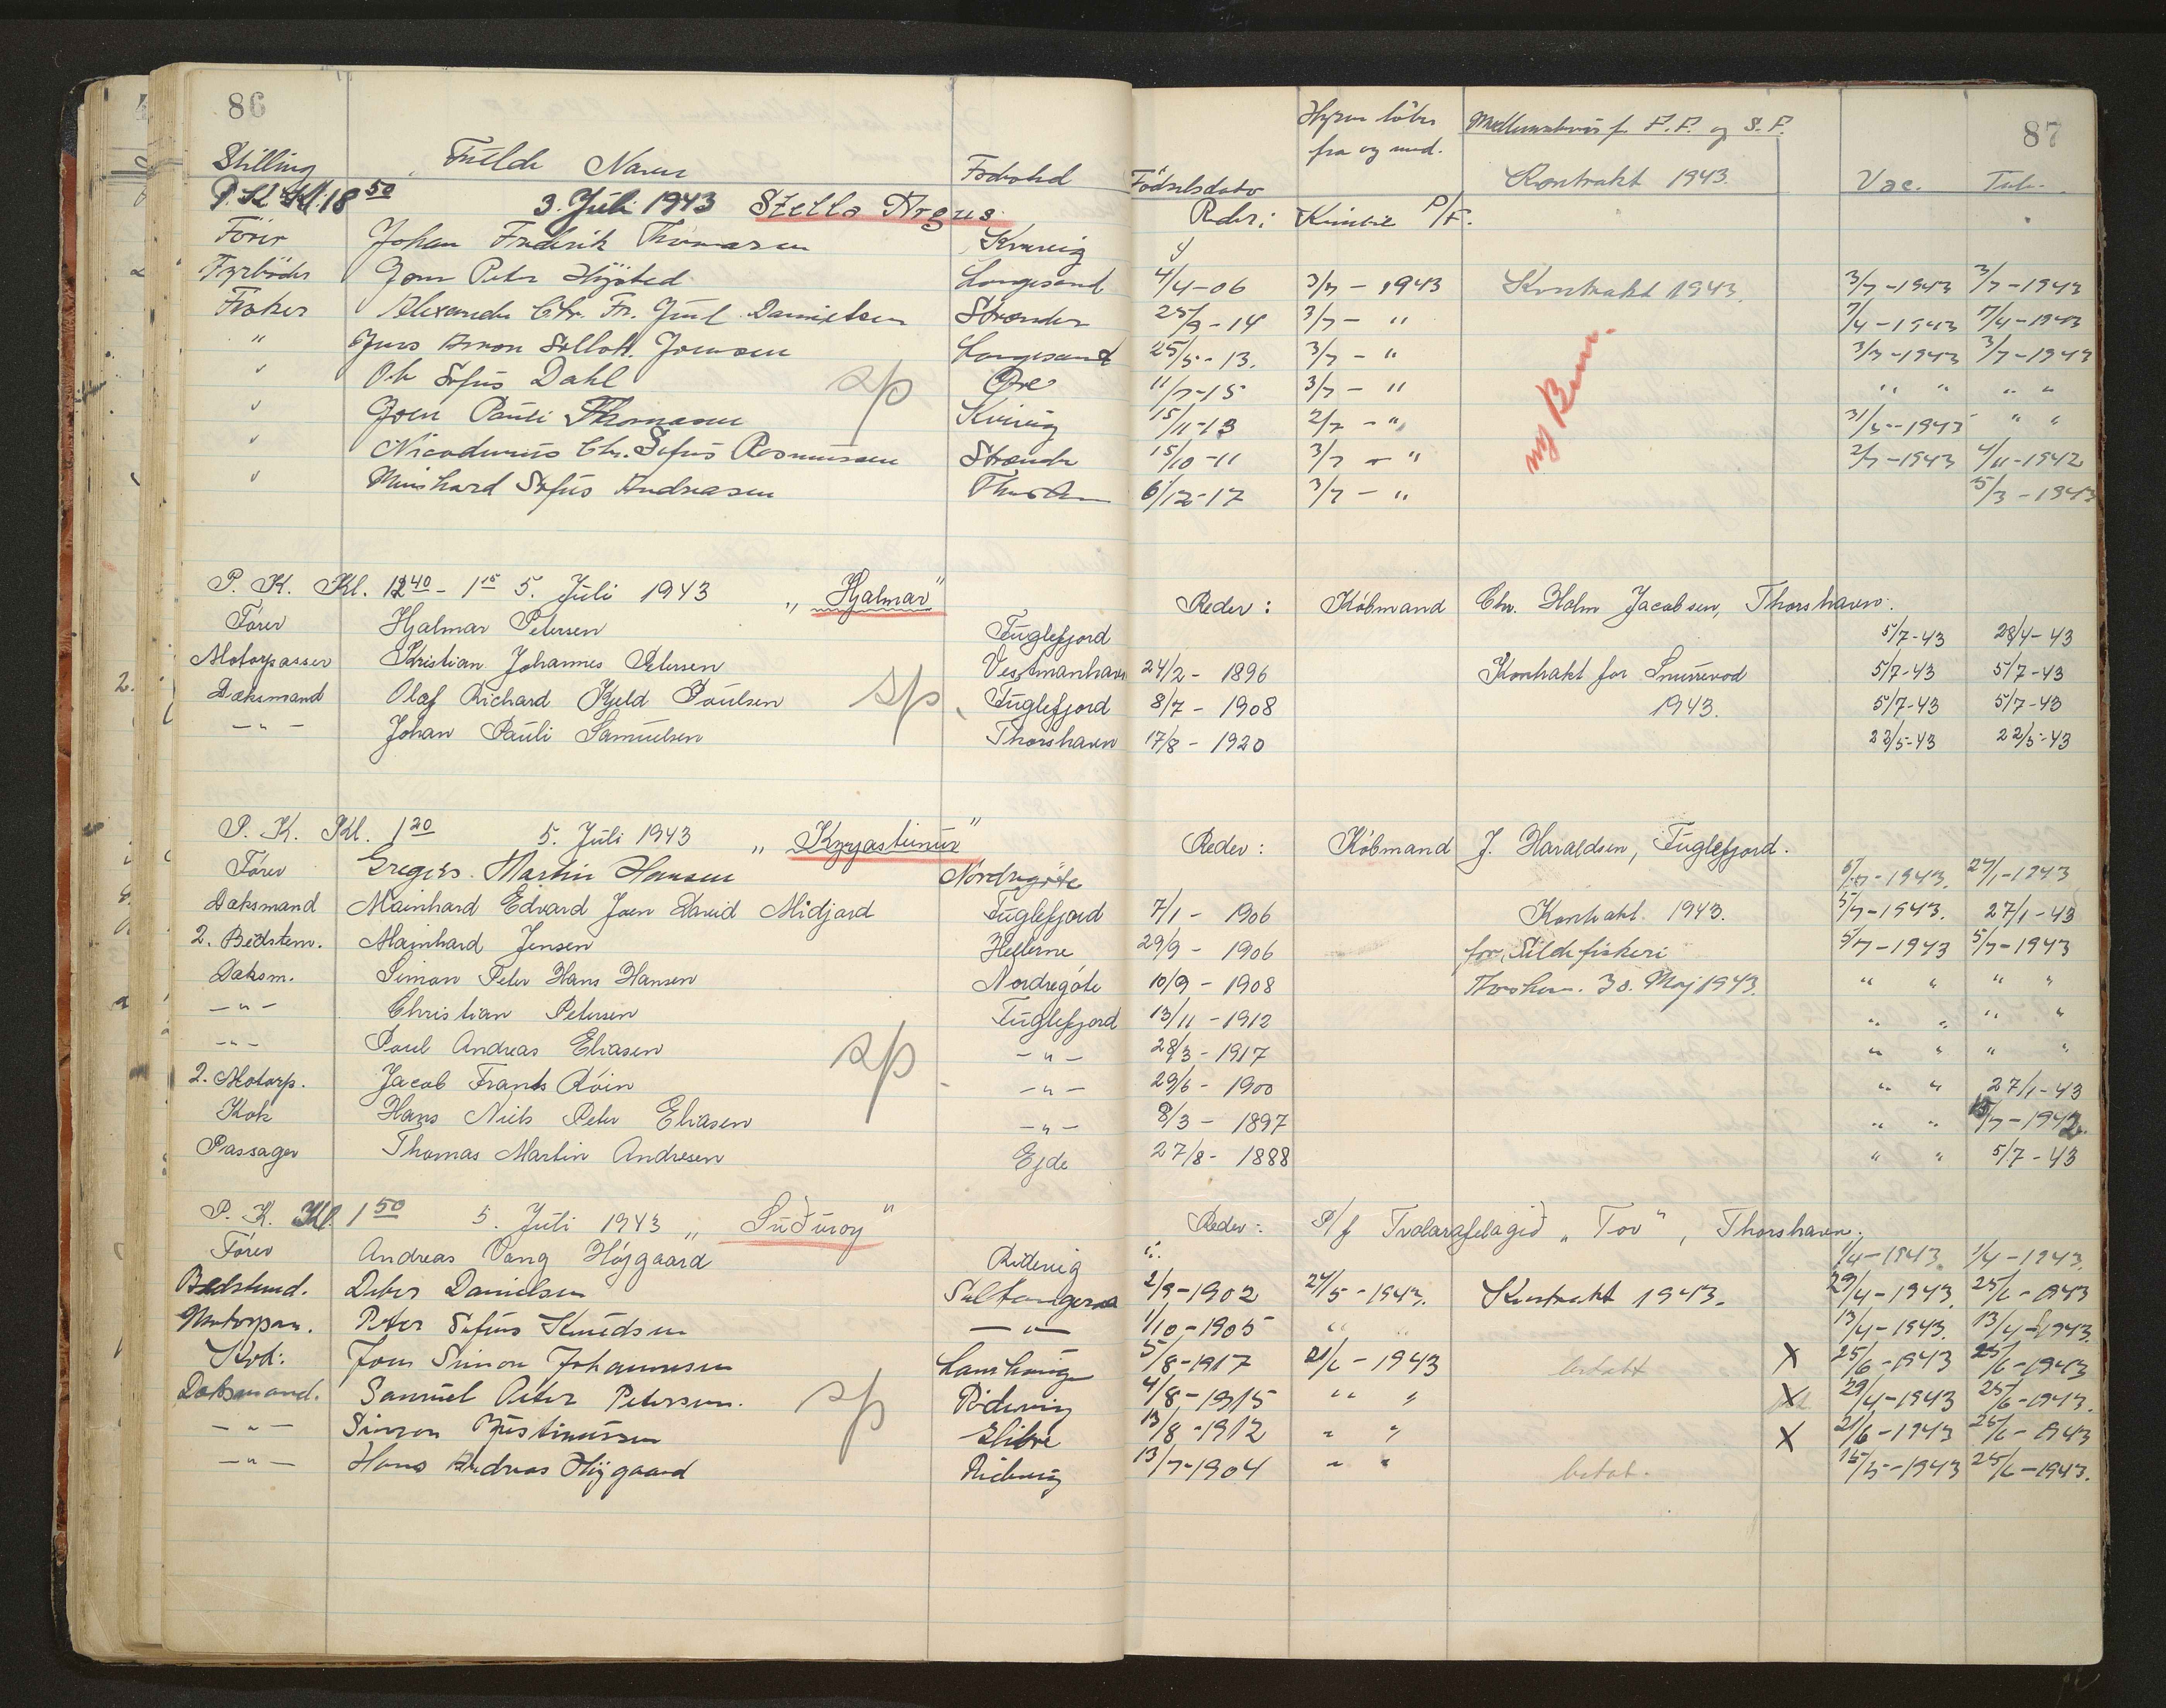 86
87
Stilling Fulde Navn Fødested Födselsdato Hyren löber fra og med. Medlemsbevis f. F.F. og S.F. Kontrakt 1943. Vac. Tub.
P. K. Kl. 18 50 3. Juli 1943 Stella Argus Reder: P/F.
Förer Johan Frederik Thomasen Kvivig
Fyrböder Joen Peter Höjsted Langesand 4/4-06 3/7 - 1943 Kontrakt 1943. 3/7-1943 3/7-1943
Fisker Alexander Chr. Fr. Juul Danielsen Strænder 25/9-14 3/7 - " 7/4-1943 7/4-1943
" Jens Joensen Langesand 25/5-13. 3/7 - " 3/7-1943 3/7-1943
" Ole Sofus Dahl 11/7-15 3/7 - " " " " "
" Joen Pauli Thomasen Kvivig 15/11-13 2/7 - " 31/5-1943 " "
" Nicodemus Chr. Sofus Rasmussen Strænder 15/10-11 3/7 - " 2/7-1943 4/11-1942
" Meinhard Sofus Andreasen 6/12-17 3/7 - " 5/3-1943
sp
P. K. Kl. 12 40 - 1 15 5. Juli 1943 „Hjalmar" Reder: Købmand Chr. Holm Jacobsen, Thorshavn.
Fører Hjalmar Petersen Fuglefjord 5/7-43 28/4-43
Motorpasser Kristian Johannes Petersen Vestmanhavn 24/2 - 1896 Kontrakt for Snurrevod 5/7-43 5/7-43
Dæksmand Olaf Richard Kjeld Poulsen Fuglefjord 8/7 - 1908 1943. 5/7-43 5/7-43
- " - Johan Pauli Samuelsen Thorshavn 17/8 - 1920 22/5-43 22/5-43
sp
P. K. Kl. 1 20 5. Juli 1943 „Kryasteinur" Reder: Købmand J. Haraldsen, Fuglefjord.
Fører Gregers Martin Hansen Nordregøte 5/7-1943. 27/1-1943
Dæksmand Mainhard Edvard Joen David Midjord Fuglefjord 7/1 - 1906 Kontrakt 1943. 5/7-1943. 27/1-43
2. Bedstem. Mainhard Jensen Hellerne 29/9 - 1906 for Sildefiskeri 5/7-1943 5/7-1943
Dæksm. Simon Peter Hans Hansen Nordregøte 10/9 - 1908 Thorshavn. 30. Maj 1943. " " " "
- " - Christian Petersen Fuglefjord 13/11 - 1912 " " " "
- " - Poul Andreas Eliasen - " - 28/3 - 1917 " " " "
2. Motorp. Jacob Frants Røin - " - 29/6 - 1900 " " 27/1-43
Kok Hans Niels Peter Eliasen - " - 8/3 - 1897 " " 15/7-1942.
Passager Thomas Martin Andresen Ejde 27/8 - 1888 " " 5/7-43
sp
P. K. Kl. 1 50 5. Juli 1943 „Suðuroy" Reder: P/f Tvølarafelagið „Tor", Thorshavn.
Fører Andreas Vang Højgaard Ridevig 1/4-1943. 1/4-1943.
Bedstemd. Debes Danielsen Saltangeraa 2/9-1902 24/5-1943. Kontrakt 1943. 29/4-1943. 25/6-1943
Motorpas. Peter Sofus Knudsen - " - 1/10-1905 " " 13/4-1943. 13/4-1943.
Kok. Joen Simon Johannesen Lamhauge 5/8-1917 21/6-1943 betalt X 25/6-1943 25/6-1943
Dæksmand. Samuel Peter Petersen. Ridevig 4/8-1915 " " X 29/4-1943 25/6-1943.
- " - Simon Justinussen Glibre 13/8-1912 " " X 21/6-1943 25/6-1943
- " - Hans Andreas Højgaard Ridevig 13/7-1904 " " betal. 15/5-1943 25/6-1943.
sp